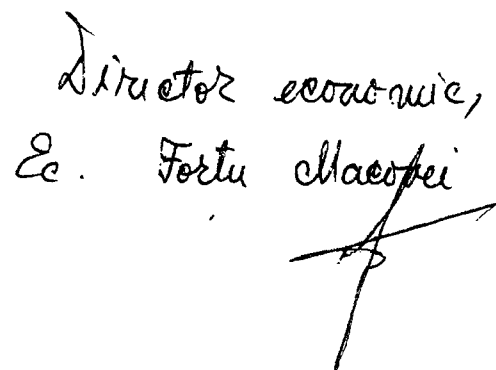 Director economic,
Ec. Fortu Macovei